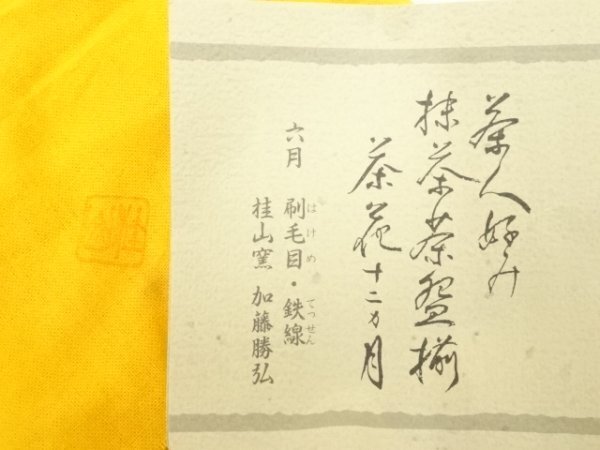 茶人好み
抹茶茶盌揃
茶花十二ヵ月
六月 刷毛目・鉄線
はけめ てっせん
桂山窯 加藤勝弘